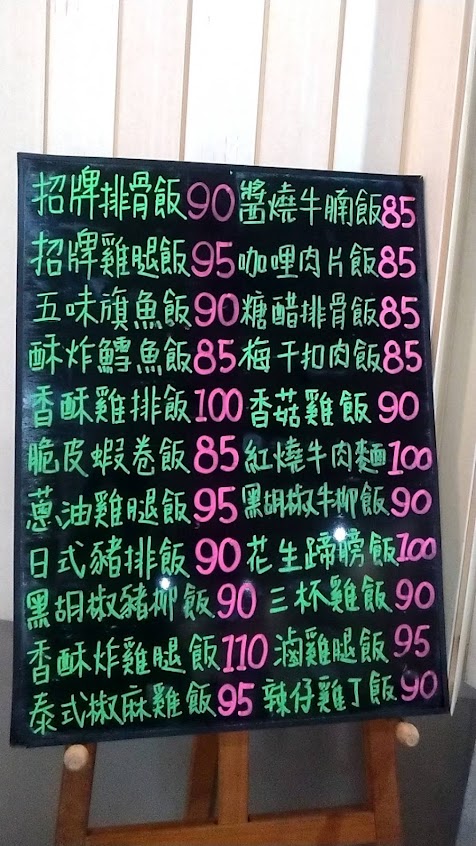 招牌排骨飯90 醬燒牛腩飯85
招牌雞腿飯95 咖哩肉片飯85
五味旗魚飯90 糖醋排骨飯85
酥炸鱈魚飯85 梅干扣肉飯85
香酥雞排飯100 香菇雞飯90
脆皮蝦卷飯85 紅燒牛肉麵100
蔥油雞腿飯95 黑胡椒牛柳飯90
日式豬排飯90 花生蹄膀飯100
黑胡椒豬柳飯90 三杯雞飯90
香酥炸雞腿飯110 滷雞腿飯95
泰式椒麻雞飯95 辣仔雞丁飯90